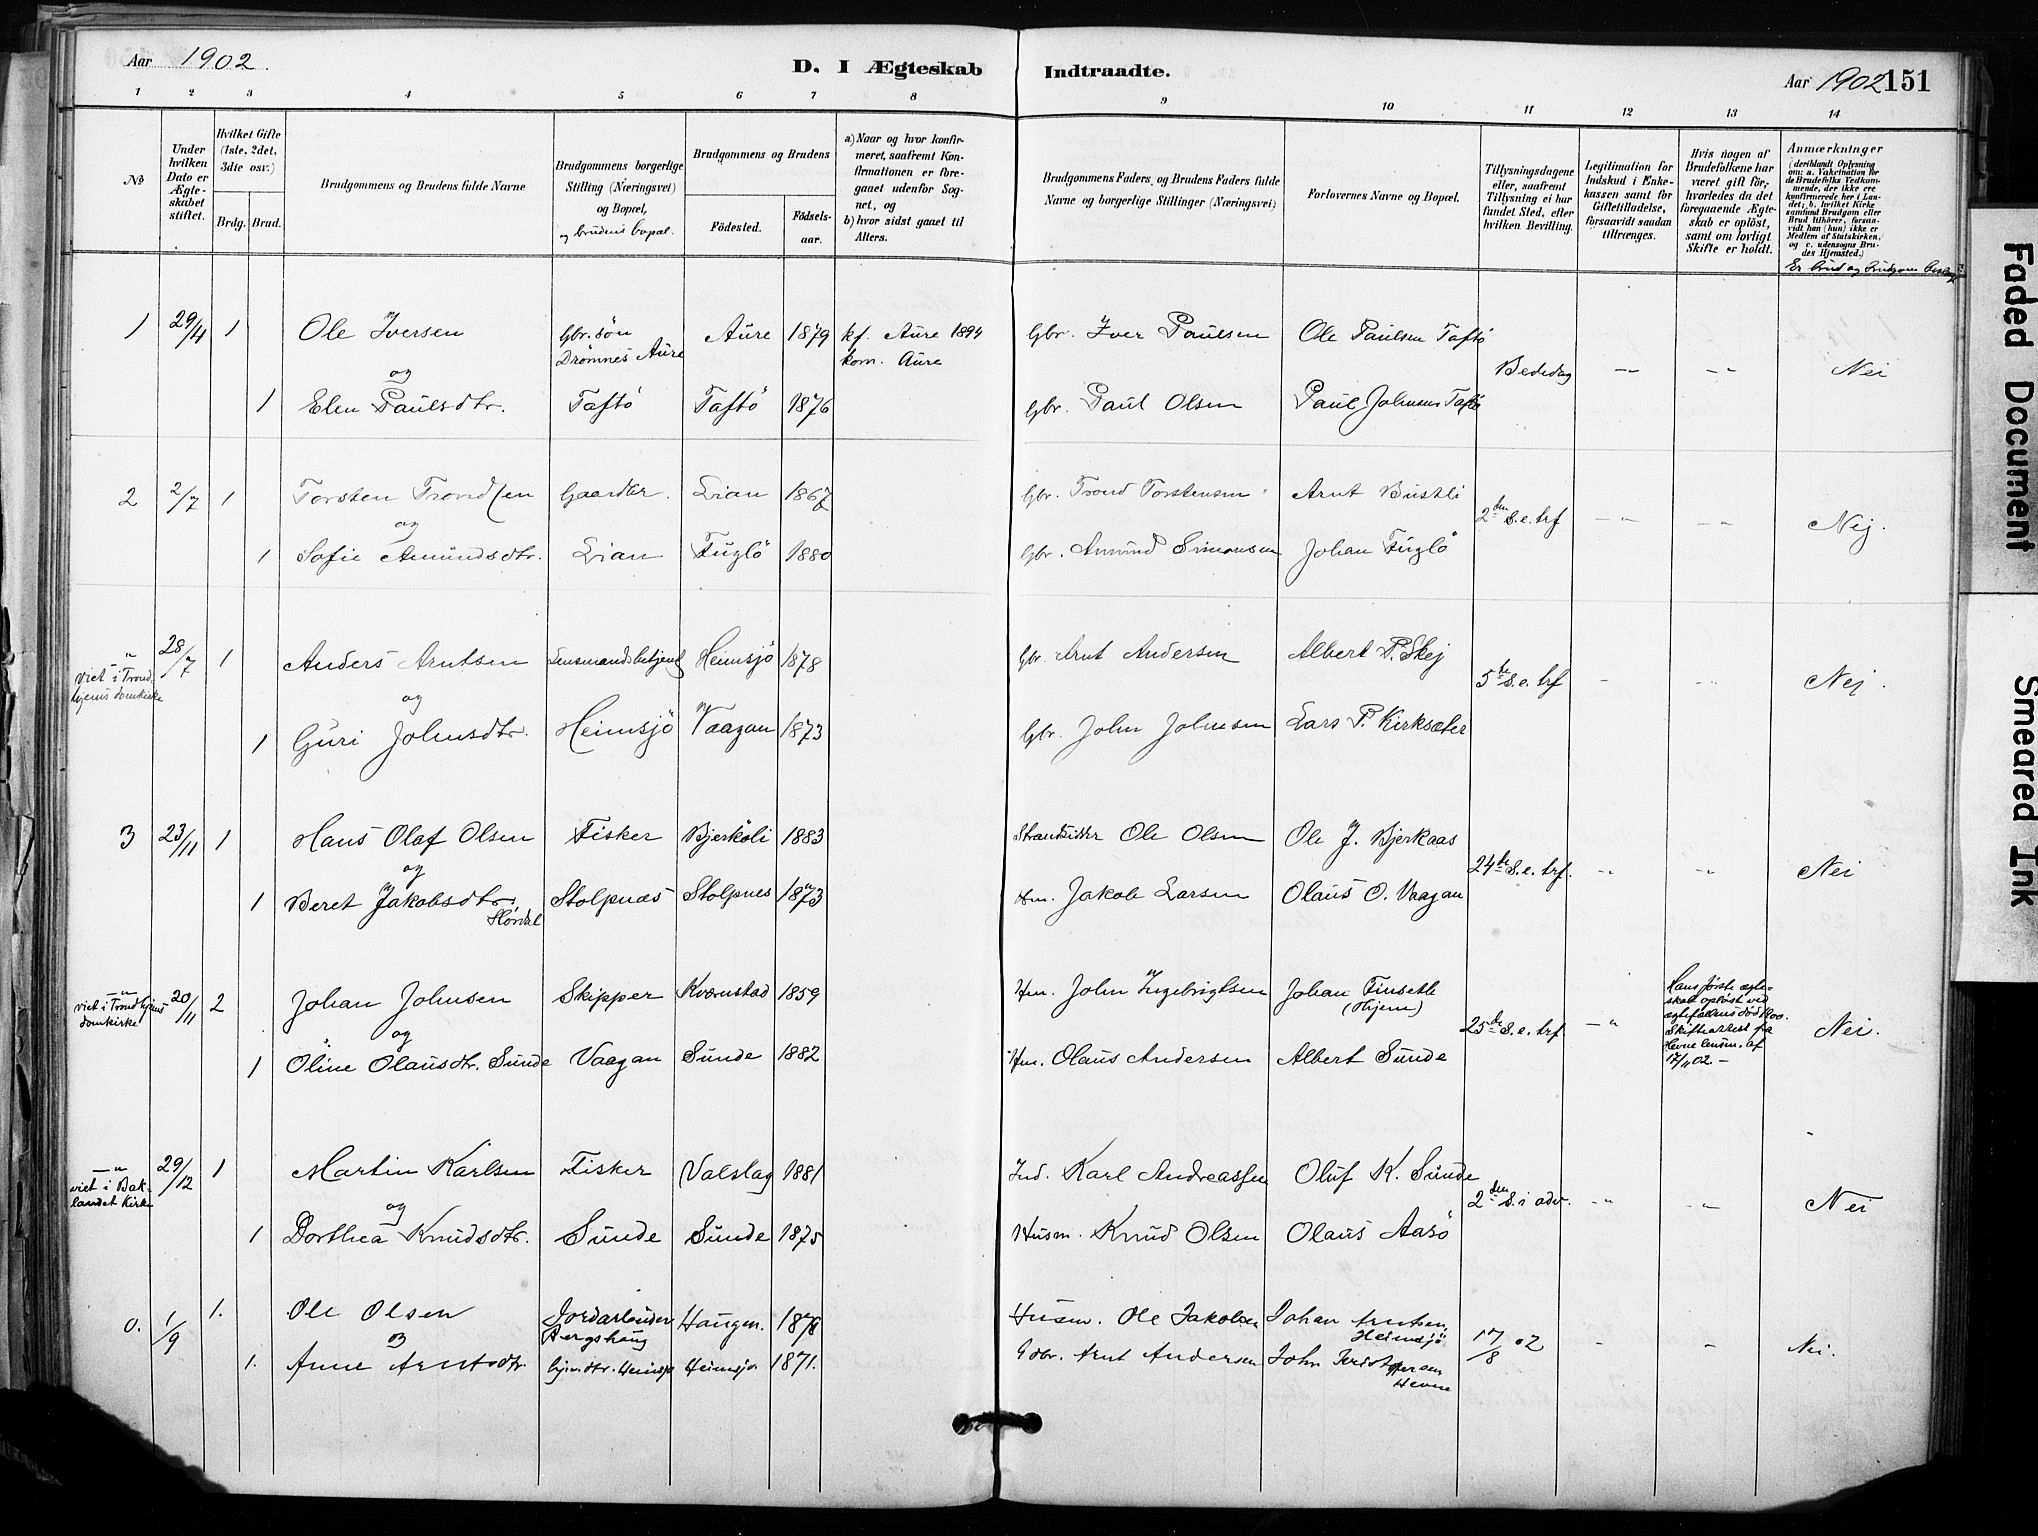 Aar 1902. D. I Ægteskab Indtraadte. Aar 1902 151
1 2 3 4 5 6 7 8 9 10 11 12 13 14
№
Under hvilken Dato er Ægteskabet stiftet.
Hvilket Gifte (1ste, 2det, 3die osv.)
Brdg. Brud.
Brudgommens og Brudens fulde Navne
Brudgommens borgerlige Stilling (Næringsvei) og Bopæl,
og brudens bopæl.
Brudgommens og Brudens
Fødested.
Fødselsaar.
a) Naar og hvor konfirmeret, saafremt Konfirmationen er foregaaet udenfor Sognet, og
b) hvor sidst gaaet til Alters.
Brudgommens Faders, og Brudens Faders fulde Navne og borgerlige Stillinger (Næringsvei)
Forlovernes Navne og Bopæl.
Tillysningsdagene eller, saafremt Tillysning ei har fundet Sted, efter hvilken Bevilling.
Legitimation for Indskud i Enkekassen samt for Giftetilladelse, forsaavidt saadan tiltrænges.
Hvis nogen af Brudefolkene har været gift før, hvorledes da det foregaaende Ægteskab er opløst, samt om lovligt Skifte er holdt.
Anmærkninger
(deriblandt Oplysning om: a. Vakcination for de Brudefolks Vedkommende, der ikke ere konfirmerede her i Landet; b. hvilket Kirkesamfund Brudgom eller Brud tilhører, forsaavidt han (hun) ikke er Medlem af Statskirken, og c. udensogns Brudes Hjemsted.)
Er brud og brudgom
1 29/4 1 Ole Iversen Gbr. søn Aure 1879 kf. Aure 1894 Gbr. Iver Paulsen Ole Paulsen Taftö
Drömnes Aure kom. Aure
og Bededag -"- -"- Nei
1 Elen Paulsdtr. Taftö Taftö 1876 Gbr. Paul Olsen Paul Johnsen Taftö
2 2/7 1 Torsten Trondsen Gaardbr. Lian 1867 Gbr. Trond Torstensen Arnt Bustli
og 2den S. e. trf -"- -"- Nej.
1 Sofie Amundsdtr. Lian Fuglö 1880 Gbr. Amund Simonsen Johan Fuglö
" 28/7 1 Anders Arntsen Lensmandsbetjent Hemsjö 1878 Gbr. Arnt Andersen Albert P. Skej
viet i Trondhjems domkirke
og 5te S. e. trf - -"- Nej.
1 Guri Johnsdtr. Heimsjö Vaagan 1873 Gbr. John Johnsen Lars P. Kirksæter
3 23/11 1 Hans Olaf Olsen Fisker Bjerköli 1883 Strandsidder Ole Olsen Ole J. Bjerkaas
og 24de S. e. trf. -"- -"- Nei
1 Beret Jakobsdtr. Stolpnæs Stolpnes 1873 Hm. Jakob Larsen Olaus O. Vaagan
-"- 20/11 2 Johan Johnsen Skipper Kværnstad 1859 Hm. John Ingebrigtsen Johan Finsetle
viet i Trondhjems domkirke
(Hjem)
og 25de S. e. trf -" Nei.
Hans første ægteskab opløst ved ægtefællens död 1900. Skifteattest fra Hevne lensm. af 17/11 02.-
1 Oline Olausdtr. Sunde Vaagan Sunde 1882 Hm. Olaus Andersen Albert Sunde
-"- 29/12 1 Martin Karlsen Fisker Valslag 1881 Ind. Karl Andreassen Oluf K. Sunde
viet i Baklandet Kirke
og 2den S. i adv. -"- -"- Nei
1 Dorthea Knudsdtr. Sunde Sunde 1875 Husm. Knud Olsen Olaus Aasö
0. 1/9 1. Ole Olsen Jordarbeider Haugen. 1878 Husm. Ole Jakobsen Johan Arntsen
Bergshaug Heimsjö
og 17/8 02 - - Nei.
1. Anne Arntsdtr. Heimsjø Heimsjø 1871. Gdbr. Arnt Andersen John Kristoffersen
Hevne
Faded Document
Smeared Ink